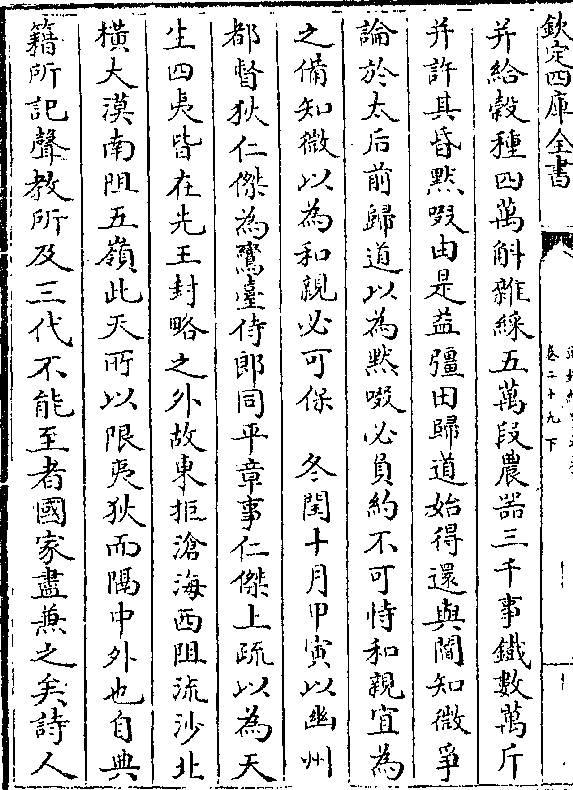 欽定四庫全書
卷二十九下
并給穀種四萬斛雜綵五萬段農器三千事鐵數萬斤
并許其昏黙啜由是益彊田歸道始得還與閻知微爭
論於太后前歸道以為黙啜必負約不可恃和親宜為
之備知微以為和親必可保　冬閏十月甲寅以幽州
都督狄仁傑為鸞臺侍郎同平章事仁傑上疏以為天
生四夷皆在先王封略之外故東拒滄海西阻流沙北
橫大漠南阻五嶺此天所以限夷狄而隔中外也自典
籍所記聲教所及三代不能至者國家盡兼之矣詩人